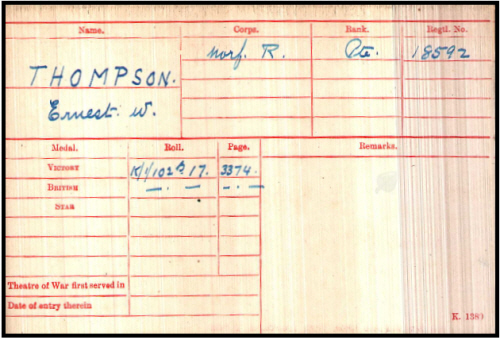 Name. Corps. Rank. Regtl. No.
THOMPSON. Norf. R. Pte. 18592
Ernest. W.
Medal. Roll. Page. Remarks.
VICTORY K/1/102B17. 3374.
BRITISH —"— —"—
STAR
Theatre of War first served in
Date of entry therein
K. 1380